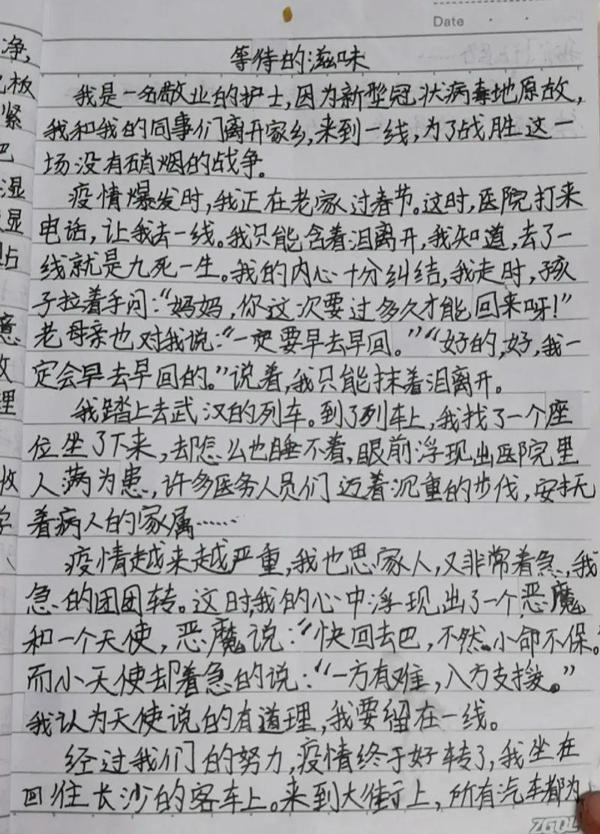 Date
等待的滋味
我是一名敬业的护士,因为新型冠状病毒地原故,
我和我的同事们离开家乡,来到一线,为了战胜这一
场没有硝烟的战争。
疫情爆发时,我正在老家过春节。这时,医院打来
电话,让我去一线。我只能含着泪离开,我知道,去了一
线就是九死一生。我的内心十分纠结,我走时,孩
子拉着手问:“妈妈,你这次要过多久才能回来呀!”
老母亲也对我说:“一定要早去早回。”“好的,好,我一
定会早去早回的。”说着,我只能抹着泪离开。
我踏上去武汉的列车。到了列车上,我找了一个座
位坐了下来,却怎么也睡不着,眼前浮现出医院里
人满为患,许多医务人员们迈着沉重的步伐,安抚
着病人的家属……
疫情越来越严重,我也思家人,又非常着急,我
急的团团转。这时,我的心中浮现出了一个恶魔
和一个天使,恶魔说:“快回去巴,不然小命不保。
而小天使却着急的说:“一方有难,八方支援。”
我认为天使说的有道理,我要留在一线。
经过我们的努力,疫情终于好转了,我坐在
回往长沙的客车上。来到大街上,所有汽车都为
净,
板
紧
巴
湿
显
占
意
理
收
学